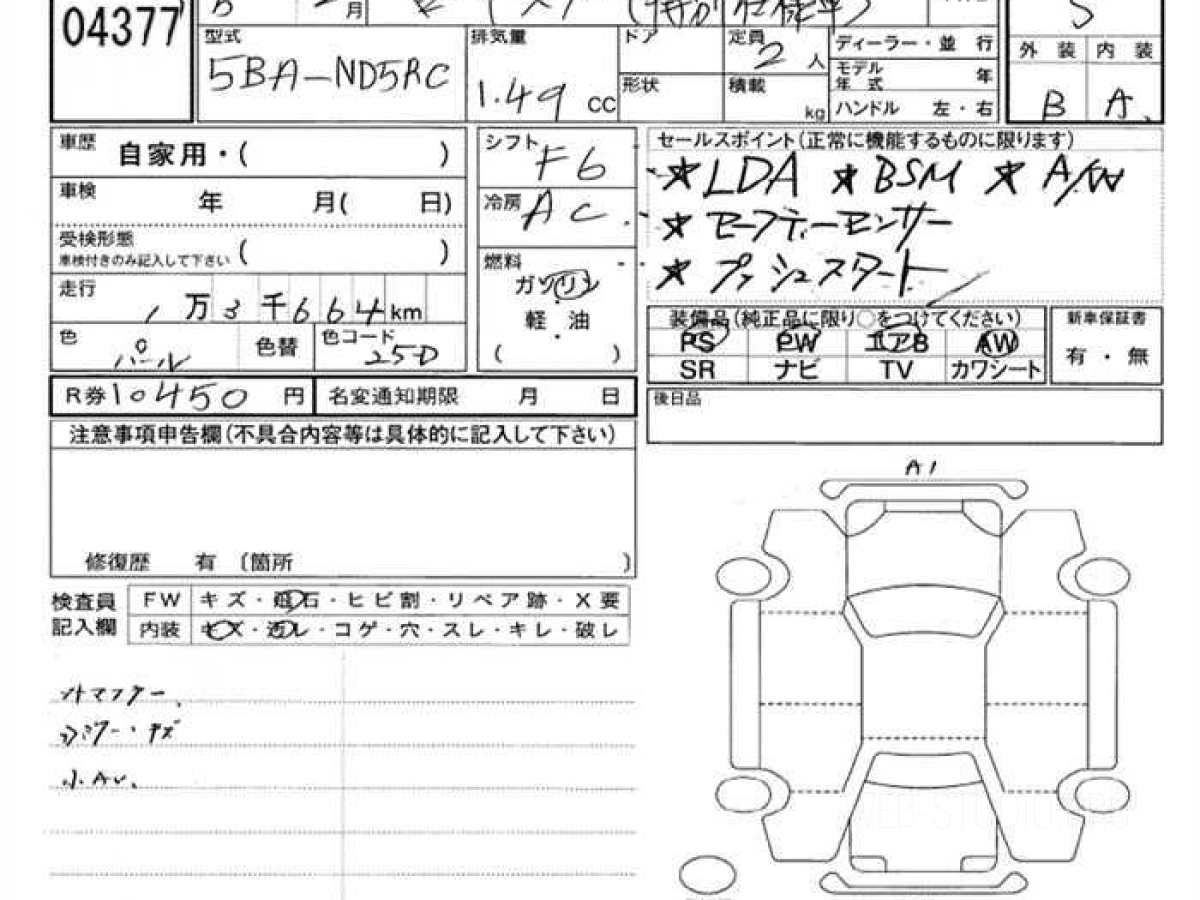 04377
月
(特別仕様車)
S
型式
5BA-ND5RC
排気量
1.49 CC
ドア
形状
定員
2人
積載
kg
ディーラー・並 行
モデル年式 年
ハンドル 左・右
外 装 内 装
B A
車歴 自家用・( )
車検 年 月( 日)
受検形態
車検付きのみ記入して下さい ( )
走行
1万3千664km
色 パール 色替 色コード 25D
シフト F6
冷房 AC
燃料
ガソリン
・
軽 油
・
( )
セールスポイント(正常に機能するものに限ります)
★LDA ★BSM ★A/W
★セーフティーセンサー
★プッシュスタート
装備品(純正品に限り○をつけてください)
PS PW エアB AW
SR ナビ TV カワシート
新車保証書
有・無
R券 10450 円 名変通知期限 月 日
後日品
注意事項申告欄(不具合内容等は具体的に記入して下さい)
修復歴 有 〔箇所 〕
検査員記入欄
FW キズ・飛石・ヒビ割・リペア跡・X要
内装 キズ・汚レ・コゲ・穴・スレ・キレ・破レ
外マフラー、
小AU.
A1
WEB-STUDIO.PRO